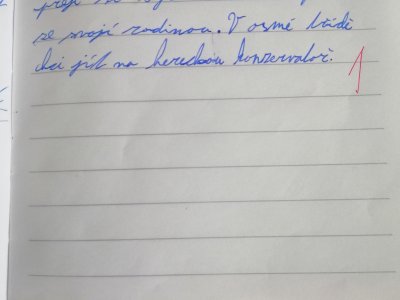 se svojí rodinou. V osmé třídě
chci jít na hereckou konzervatoř.
1